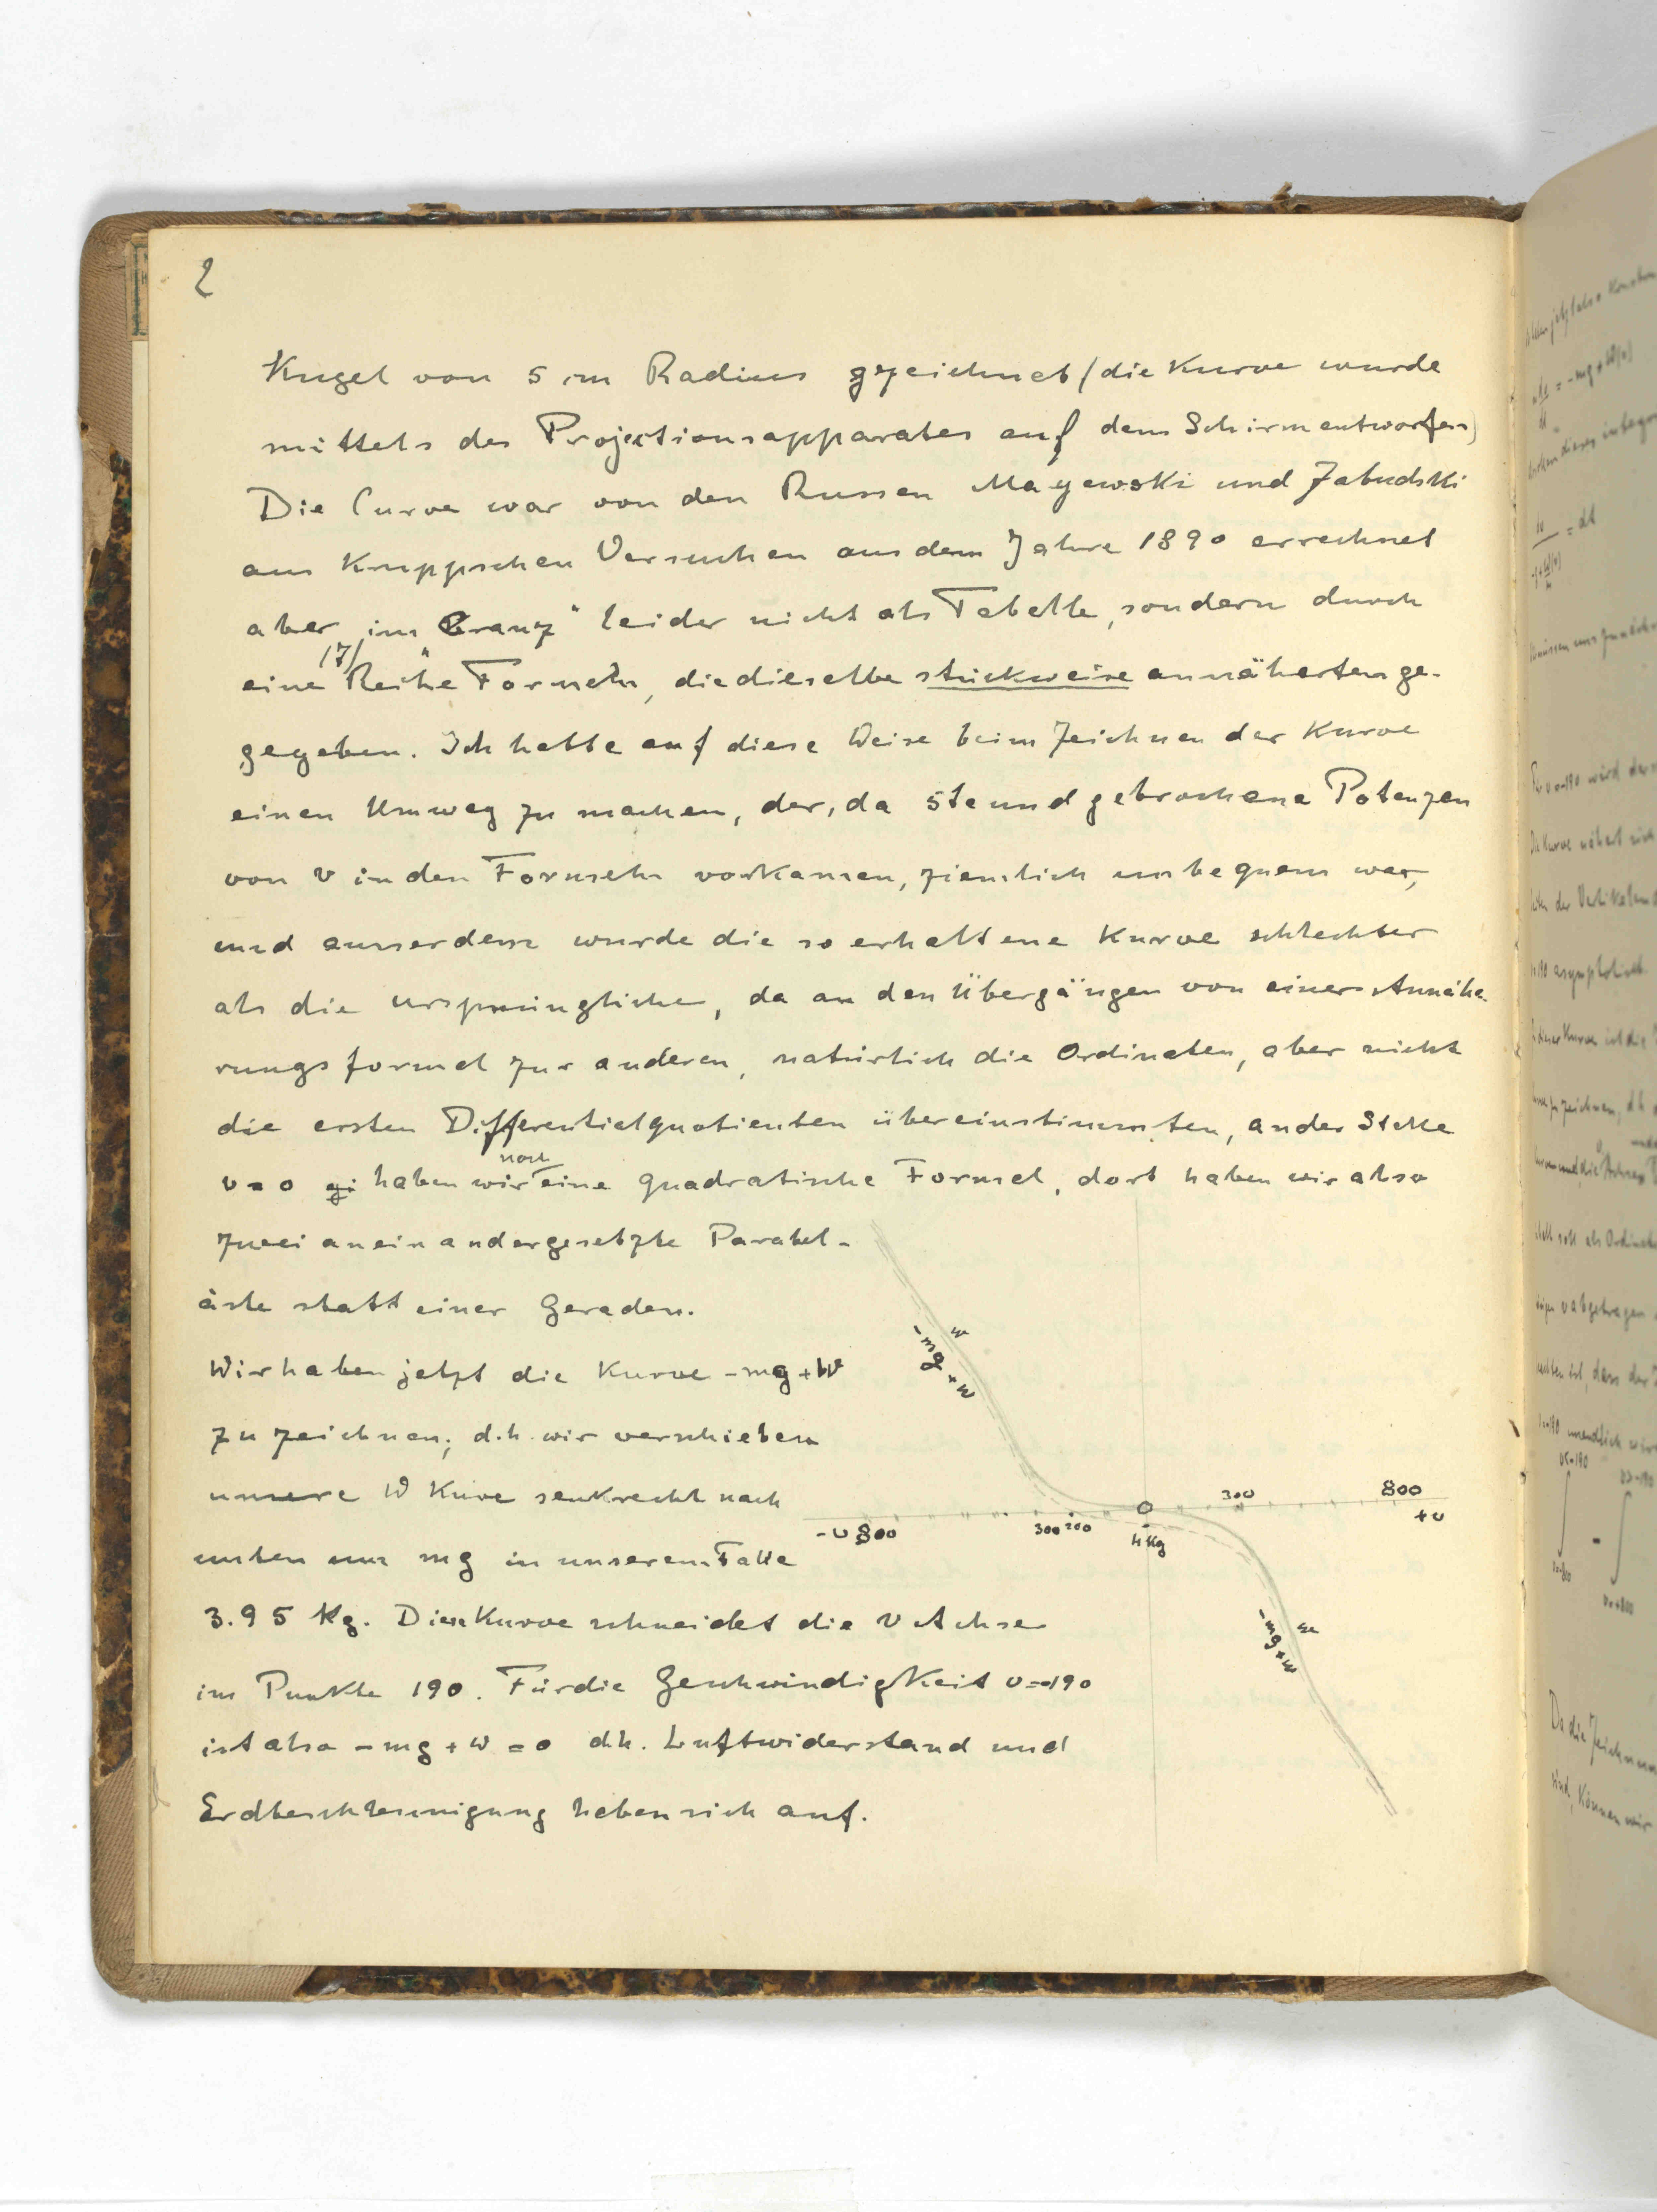 2
Kugel von 5 cm Radius gezeichnet (die Kurve wurde
mittels des Projectionsapparates auf dem Schirm entworfen)
Die Curve war von den Russen Mayewski und Zabudski
aus Kruppschen Versuchen aus dem Jahre 1890 errechnet
aber „im Cranz“ leider nicht als Tabelle, sondern durch
(7)
eine Reihe Formeln, die dieselbe stückweise annäherten ge-
gegeben. Ich hatte auf diese Weise beim Zeichnen der Kurve
einen Umweg zu machen, der, da 5te und gebrochene Potenzen
von v in den Formeln vorkamen, ziemlich unbequem war,
und ausserdem wurde die so erhaltene Kurve schlechter
als die ursprüngliche, da an den Übergängen von einer Annähe-
rungsformel zur anderen, natürlich die Ordinaten, aber nicht
die ersten Differentialquotienten übereinstimmten, an der Stelle
noch
v = 0 gi haben wir eine quadratische Formel, dort haben wir also
zwei aneinandergesetzte Parabel-
äste statt einer Geraden.
Wir haben jetzt die Kurve -mg + W
zu zeichnen; d.h. wir verschieben
unsere W Kuve senkrecht nach
unten um mg in unserem Falle
3.95 Kg. Diese Kurve schneidet die v Achse
im Punkte 190. Für die Geschwindigkeit v=-190
ist also -mg + W = 0 d.h. Luftwiderstand und
Erdbeschleunigung heben sich auf.
w
-mg + w
-v 800
300 200
0
4 Kg
300
800
+v
w
-mg + w